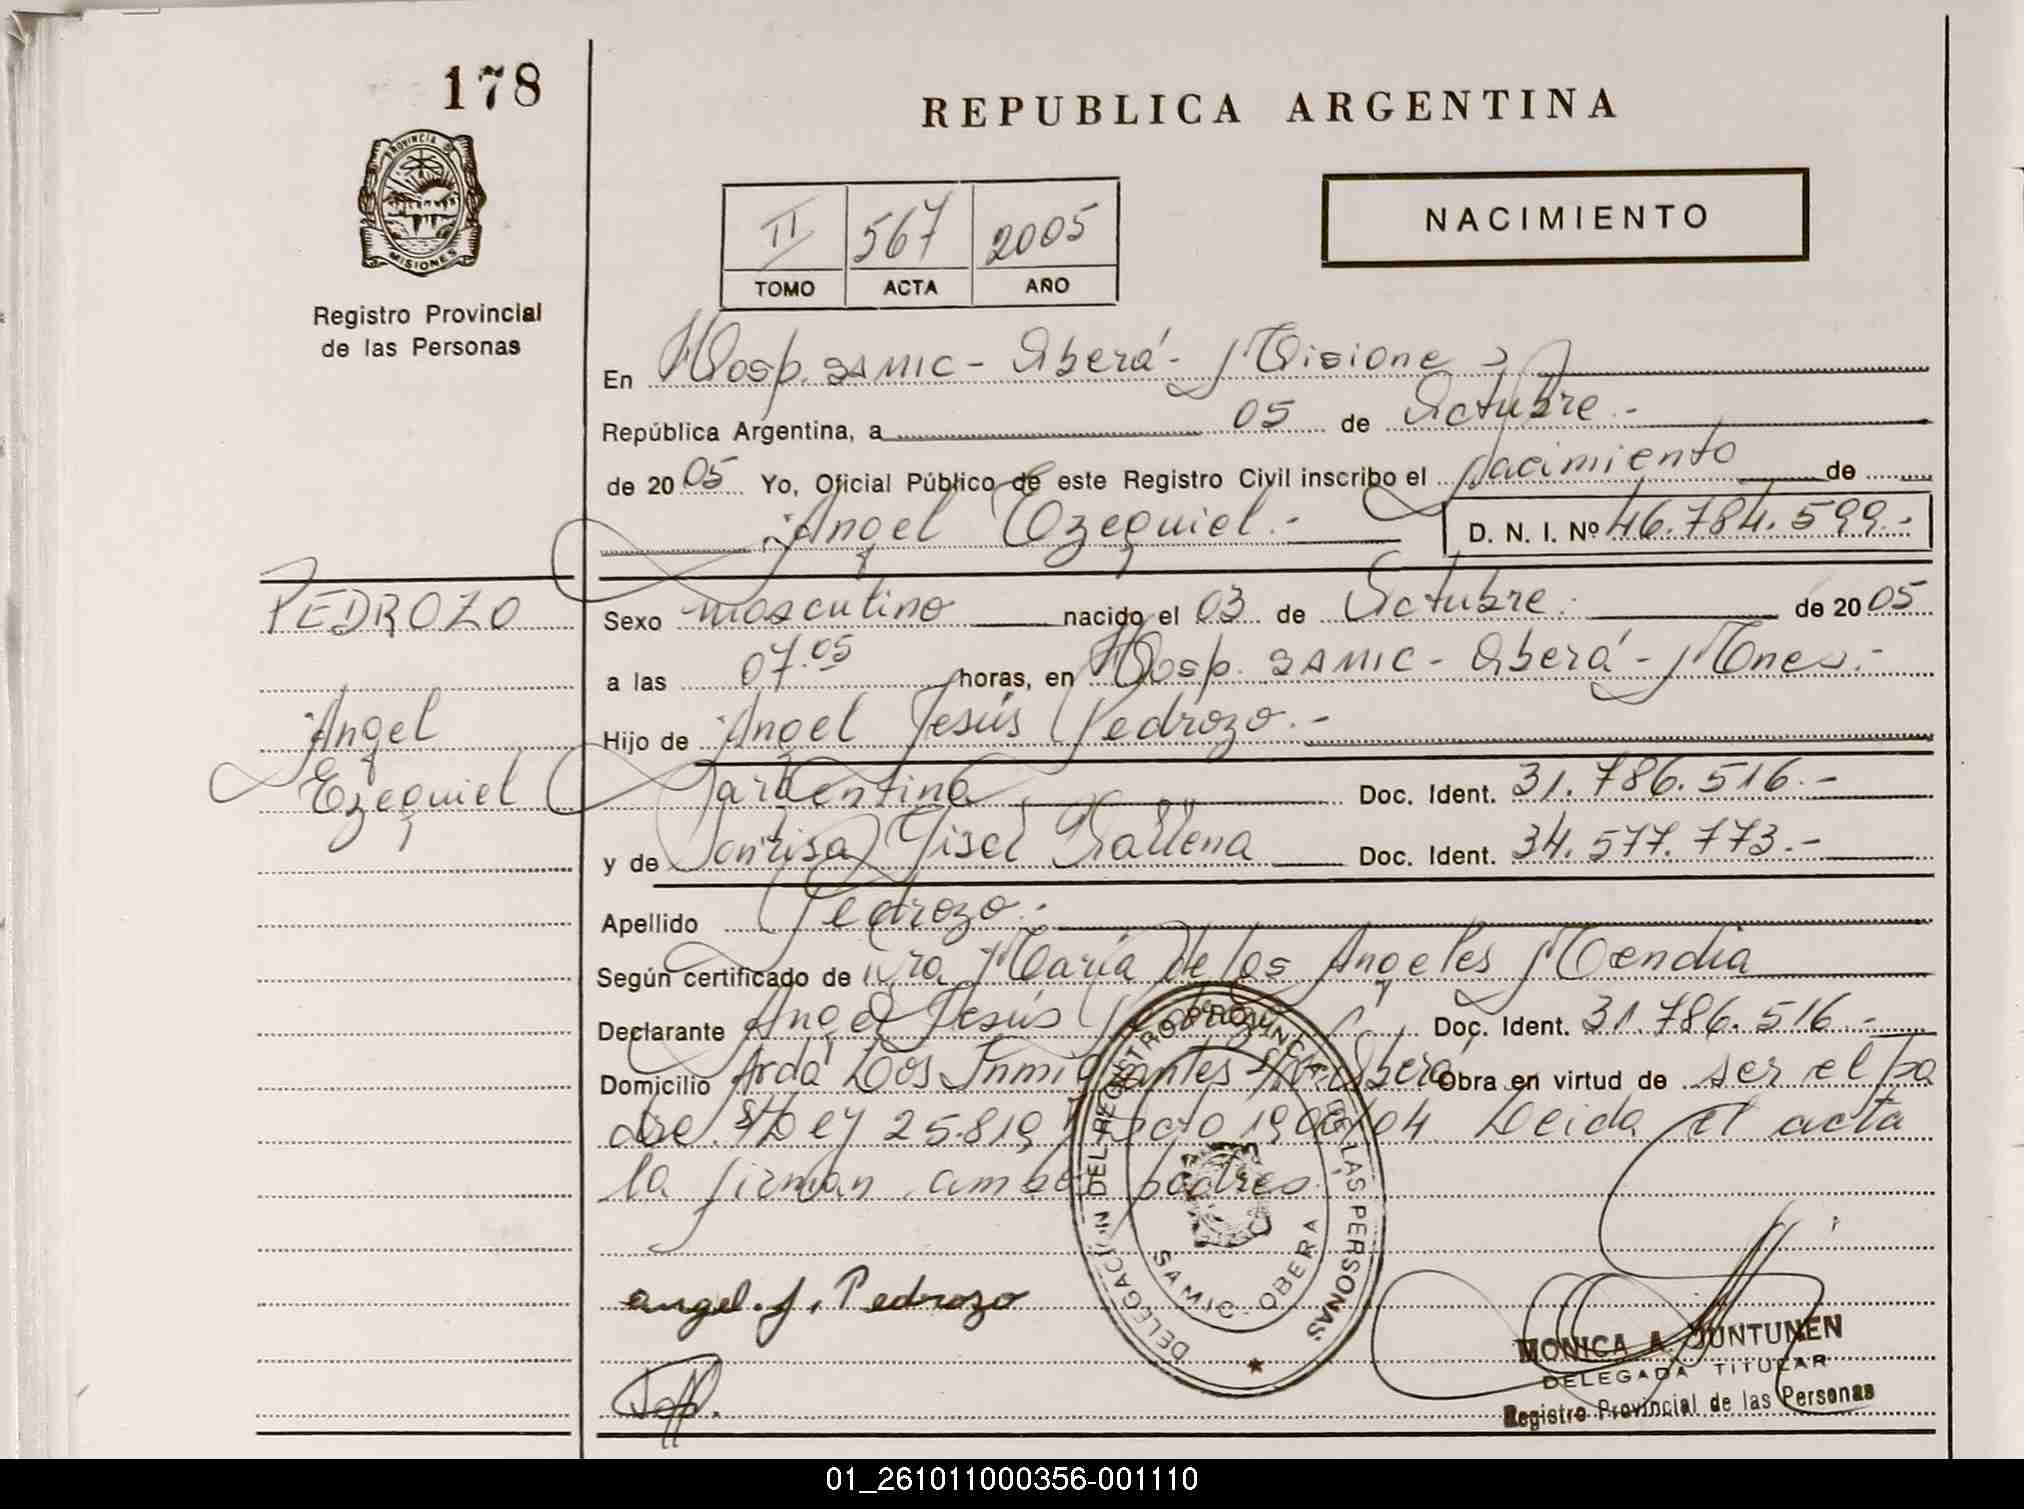 178
REPUBLICA ARGENTINA
PROVINCIA DE
MISIONES
Registro Provincial
de las Personas
II 567 2005
TOMO ACTA AÑO
NACIMIENTO
En Hosp. SAMIC - Oberá - Misiones
República Argentina, a 05 de Octubre.-
de 2005 Yo, Oficial Público de este Registro Civil inscribo el nacimiento de
Angel Ezequiel.- D. N. I. Nº 46.784.599.-
PEDROZO
Angel
Ezequiel
Sexo masculino nacido el 03 de Octubre. de 2005
a las 07.05 horas, en Hosp. SAMIC - Oberá - Mnes.-
Hijo de Angel Jesús Pedrozo.-
argentina Doc. Ident. 31.786.516.-
y de Yisel Doc. Ident. 34.577.773.-
Apellido Pedrozo.-
Según certificado de Dra María de los Angeles Mendia
Declarante Angel Jesús Pedrozo Doc. Ident. 31.786.516.-
Domicilio Avda Los Inmigrantes S/Nº Oberá Obra en virtud de ser el pa
dre. S/Ley 25.819 Dcto 1906/04 Leida el acta
la firman ambos padres
angel. J. Pedrozo
DELEGACION DEL REGISTRO PROVINCIAL DE LAS PERSONAS
SAMIC - OBERA
MONICA A. JUNTUNEN
DELEGADA TITULAR
Registro Provincial de las Personas
01_261011000356-001110